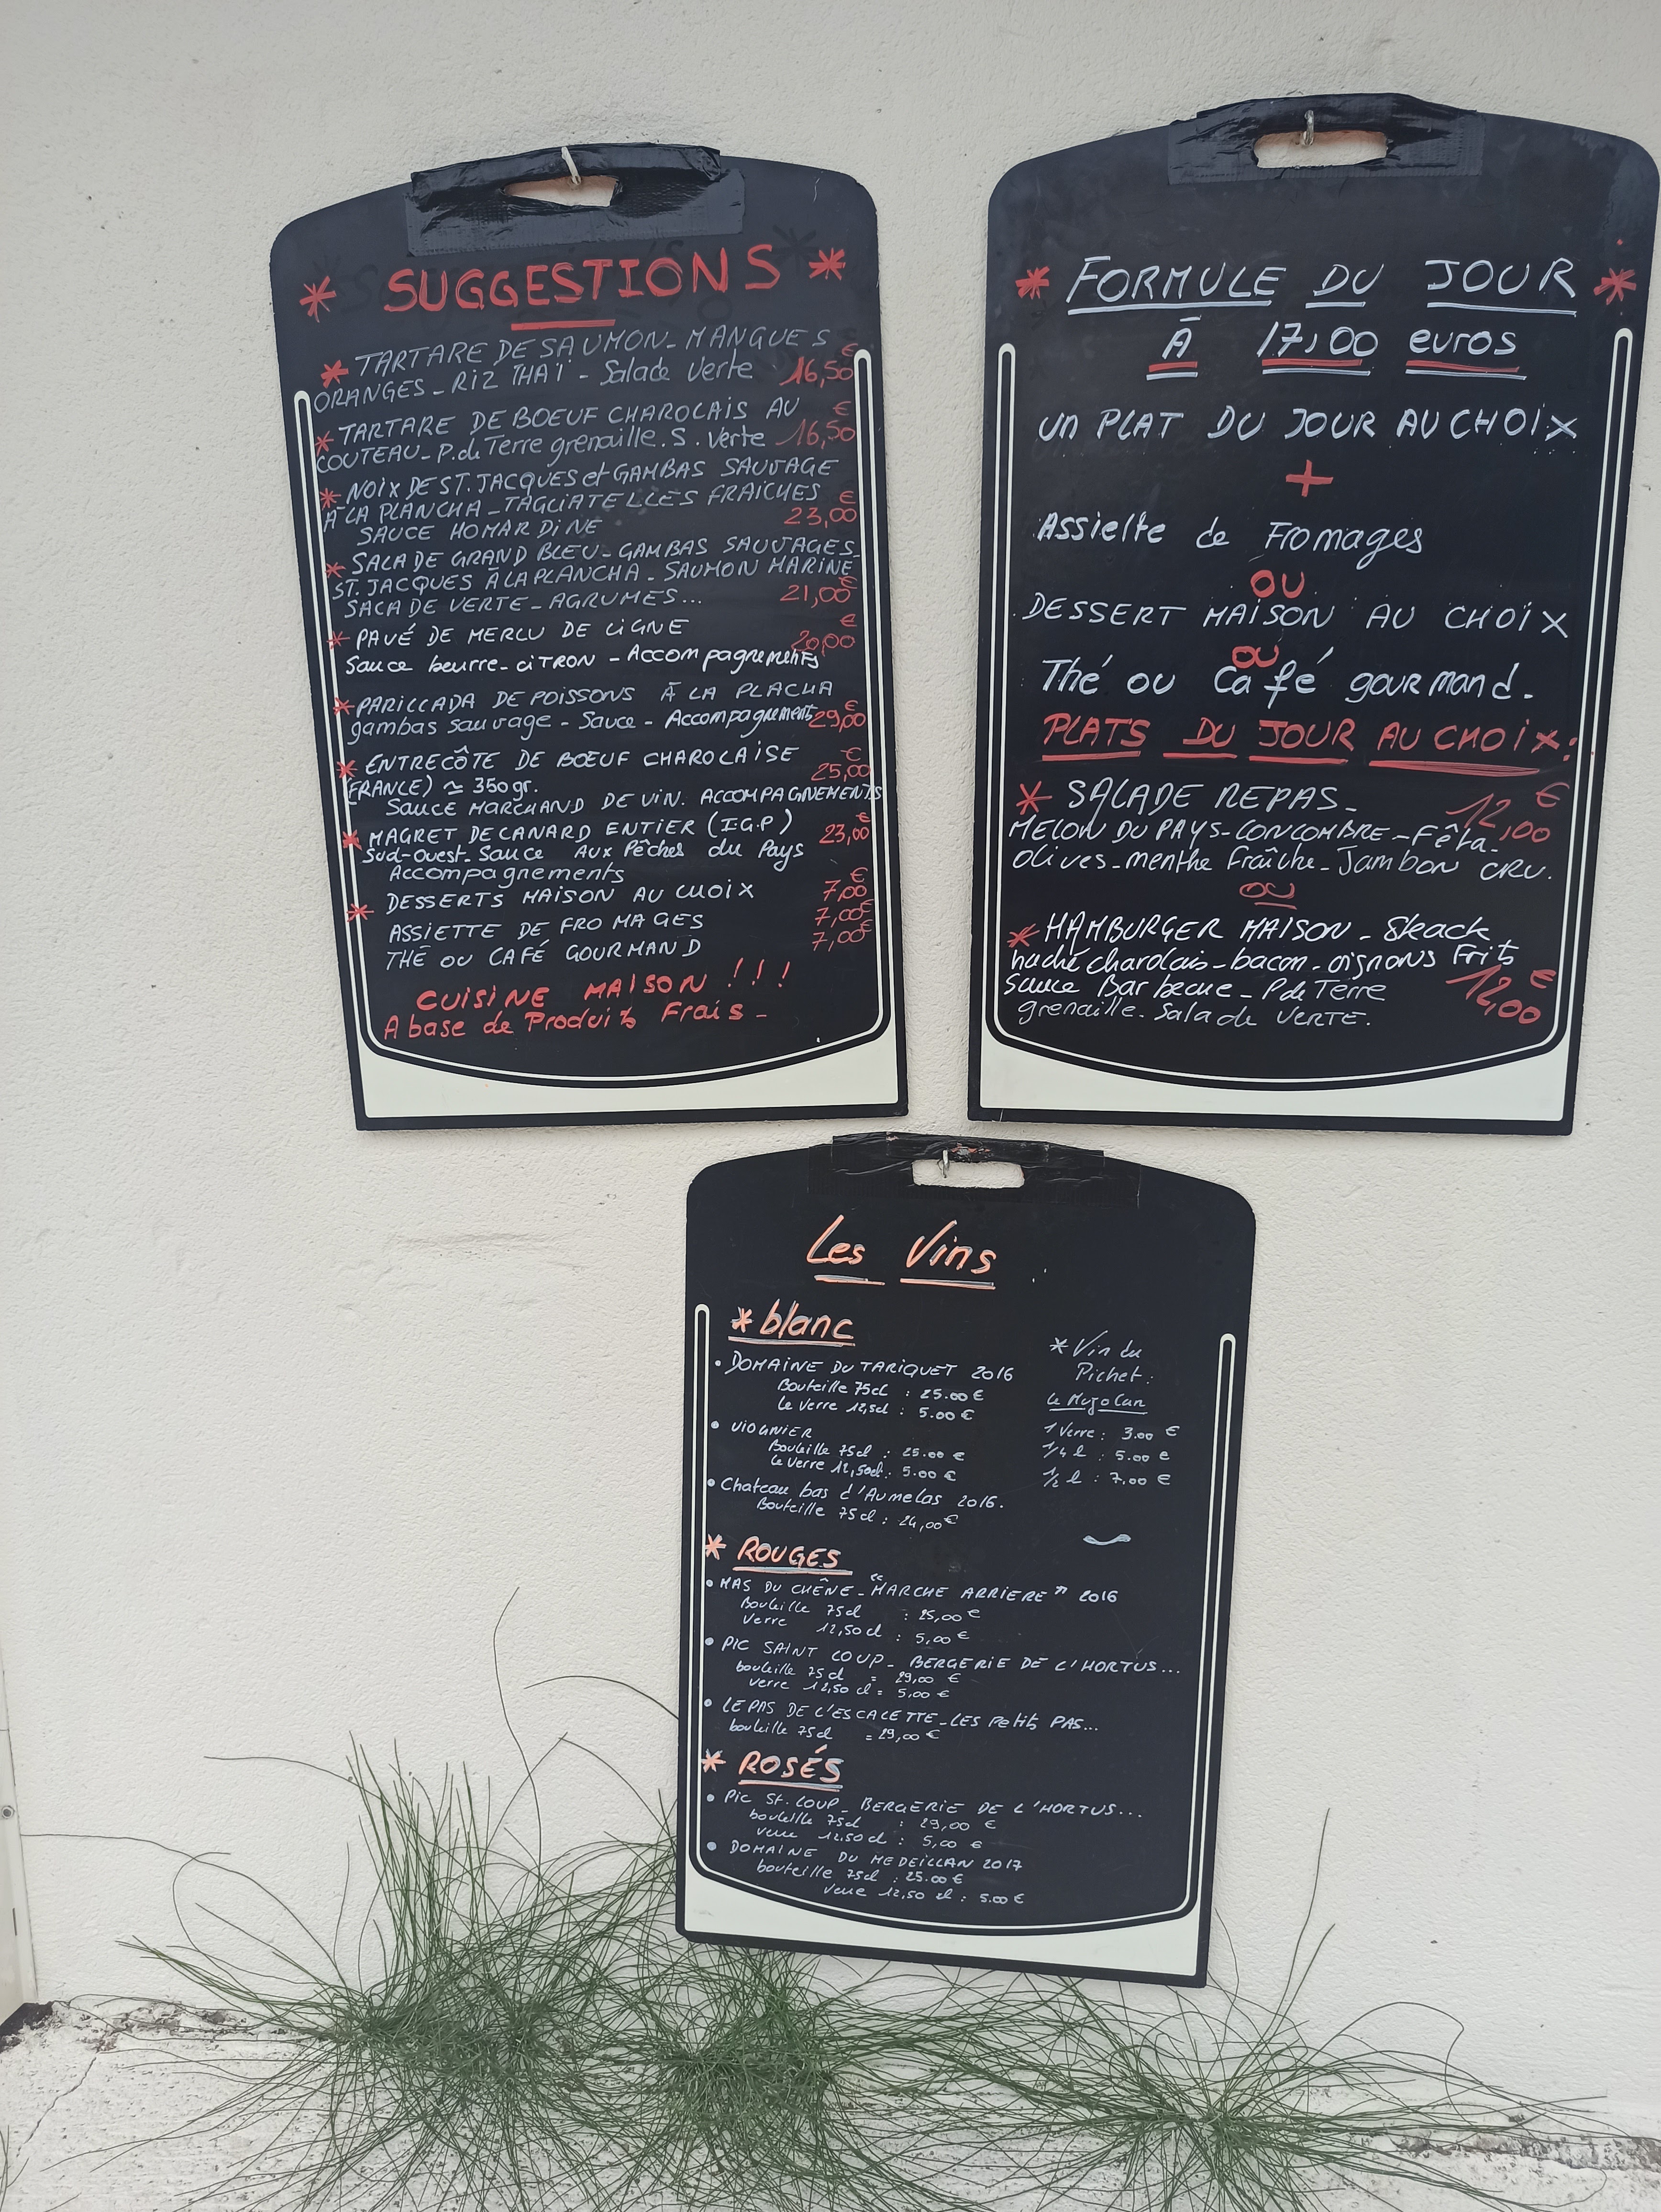 * SUGGESTIONS *
* TARTARE DE SAUMON-MANGUES
ORANGES - RIZ THAÏ - Salade Verte 16,50€
* TARTARE DE BOEUF CHAROLAIS AU
COUTEAU - P. de Terre grenaille. S. Verte 16,50€
* NOIX DE ST. JACQUES et GAMBAS SAUVAGE
À LA PLANCHA - TAGLIATELLES FRAICHES
SAUCE HOMARDINE 23,00€
* SALADE GRAND BLEU - GAMBAS SAUVAGES -
ST. JACQUES À LA PLANCHA - SAUMON MARINE
SALADE VERTE - AGRUMES... 21,00€
* PAVÉ DE MERLU DE LIGNE 20,00€
Sauce beurre - CITRON - Accompagnements
* PARILLADA DE POISSONS À LA PLACHA
gambas sauvage - Sauce - Accompagnement 29,00€
* ENTRECÔTE DE BŒUF CHAROLAISE 25,00€
(FRANCE) ≃ 350gr.
SAUCE MARCHAND DE VIN. ACCOMPAGNEMENTS
* MAGRET DE CANARD ENTIER (I.G.P) 23,00€
Sud-Ouest - Sauce Aux Pêches du Pays
Accompagnements
* DESSERTS MAISON AU CHOIX 7,00€
ASSIETTE DE FROMAGES 7,00€
THÉ OU CAFÉ GOURMAND 7,00€
CUISINE MAISON !!!
A base de Produits Frais -
* FORMULE DU JOUR *
À 17,00 euros
UN PLAT DU JOUR AU CHOIX
+
Assiette de Fromages
OU
DESSERT MAISON AU CHOIX
OU
Thé ou Café gourmand.
PLATS DU JOUR AU CHOIX:
* SALADE REPAS - 12,00€
MELON DU PAYS - CONCOMBRE - Fêta -
olives - menthe fraîche - Jambon CRU.
OU
* HAMBURGER MAISON - Steack
haché charolais - bacon - oignons Frits
Sauce Barbecue - P de Terre 12,00€
grenaille. Salade VERTE.
Les Vins
* blanc
• DOMAINE DU TARIQUET 2016
Bouteille 75cl : 25.00 €
Le verre 12,5cl : 5.00 €
• VIOGNIER
Bouteille 75cl : 25.00 €
Le verre 12,50cl : 5.00 €
• Chateau bas d'Aumelas 2016.
Bouteille 75cl : 24,00€
* Vin du
Pichet :
1 Verre : 3.00 €
1/4 l : 5.00 €
1/2 l : 7,00 €
* ROUGES
• MAS DU CHÊNE - "MARCHE ARRIERE" 2016
Bouteille 75cl : 25,00€
Verre 12,50cl : 5,00 €
• PIC SAINT LOUP - BERGERIE DE L'HORTUS...
bouteille 75cl = 29,00 €
verre 12,50 cl = 5,00 €
• LE PAS DE L'ESCALETTE - LES Petits PAS...
bouteille 75cl = 29,00 €
* ROSÉS
• PIC St. LOUP - BERGERIE DE L'HORTUS...
bouteille 75cl : 29,00 €
verre 12.50cl : 5,00 €
• DOMAINE DU MEDEILLAN 2017
bouteille 75cl : 25.00€
verre 12,50 cl : 5.00€